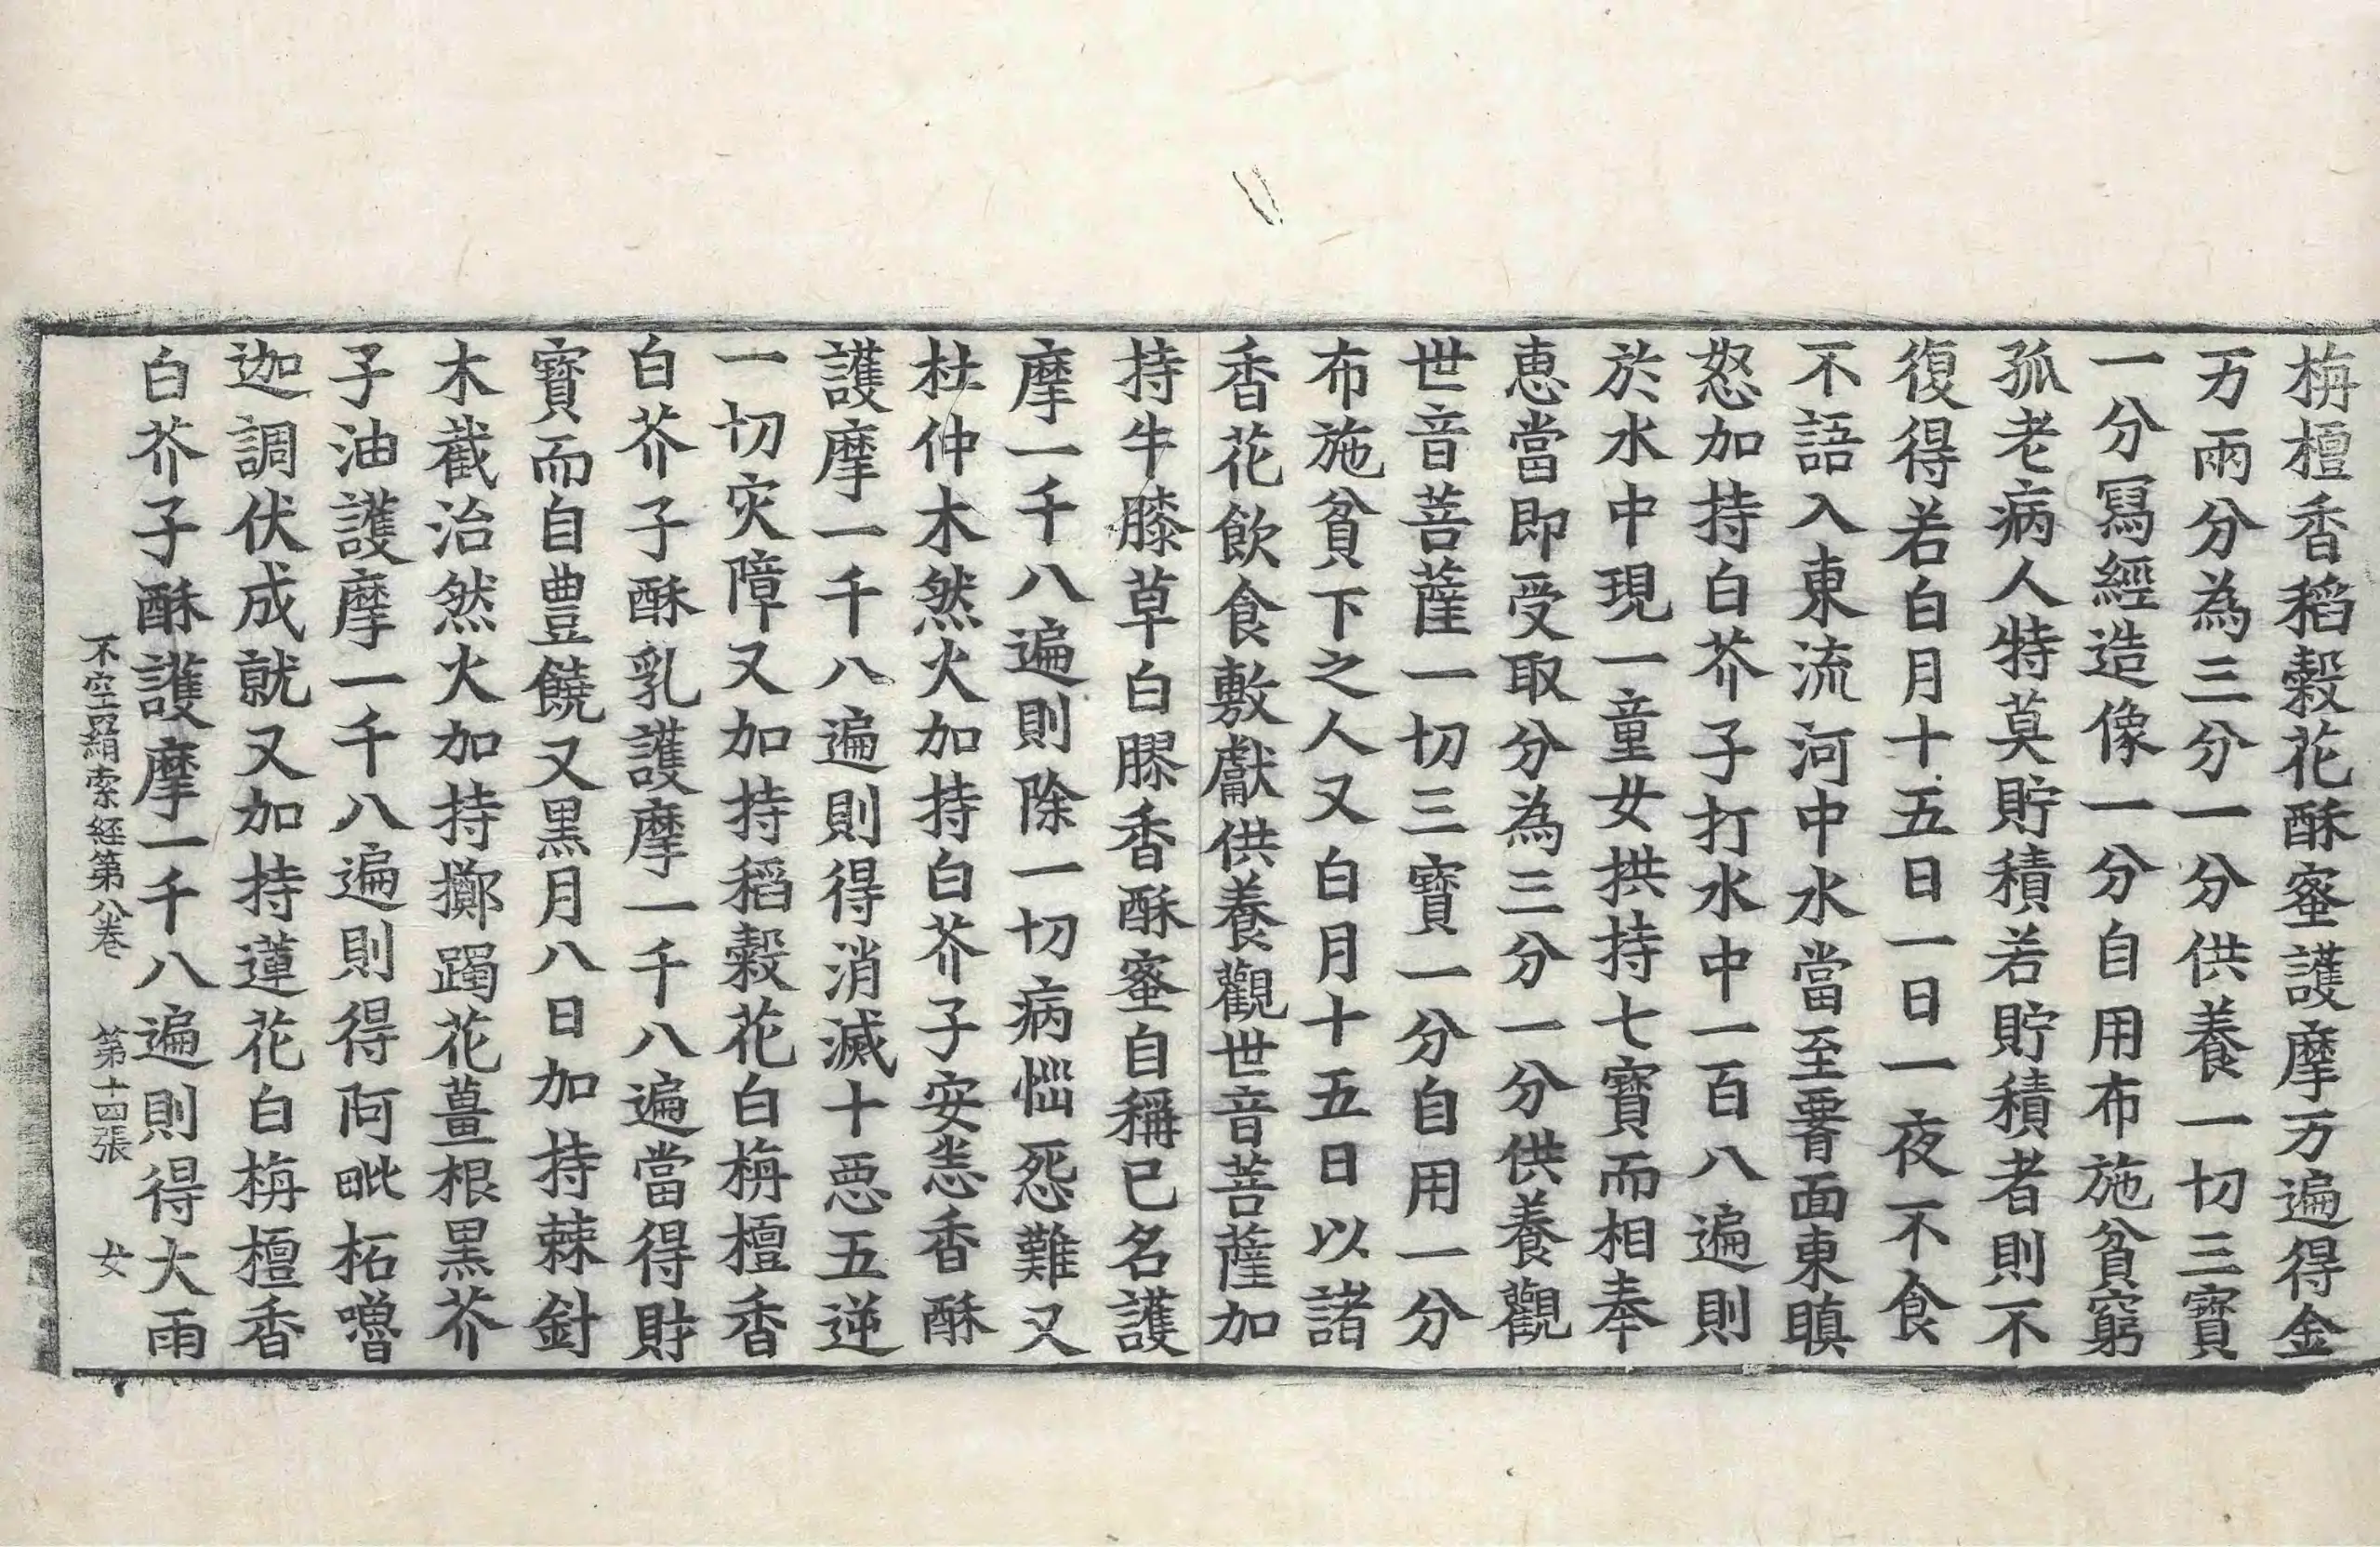 栴檀香稻穀花酥蜜護摩万遍得金
万兩分為三分一分供養一切三寶
一分寫經造像一分自用布施貧窮
孤老病人特莫貯積若貯積者則不
復得若白月十五日一日一夜不食
不語入東流河中水當至𦝫面東瞋
怒加持白芥子打水中一百八遍則
於水中現一童女拱持七寶而相奉
恵當即受取分為三分一分供養觀
世音菩薩一切三寶一分自用一分
布施貧下之人又白月十五日以諸
香花飲食敷獻供養觀世音菩薩加
持牛膝草白膠香酥蜜自稱已名護
摩一千八遍則除一切病惱怨難又
杜仲木然火加持白芥子安悉香酥
護摩一千八遍則得消滅十惡五逆
一切灾障又加持稻穀花白栴檀香
白芥子酥乳護摩一千八遍當得財
寶而自豊饒又黒月八日加持棘針
木截治然火加持擲躅花薑根黒芥
子油護摩一千八遍則得阿毗柘嚕
迦調伏成就又加持蓮花白栴檀香
白芥子酥護摩一千八遍則得大雨
不空羂索経第八卷 第十四張 女